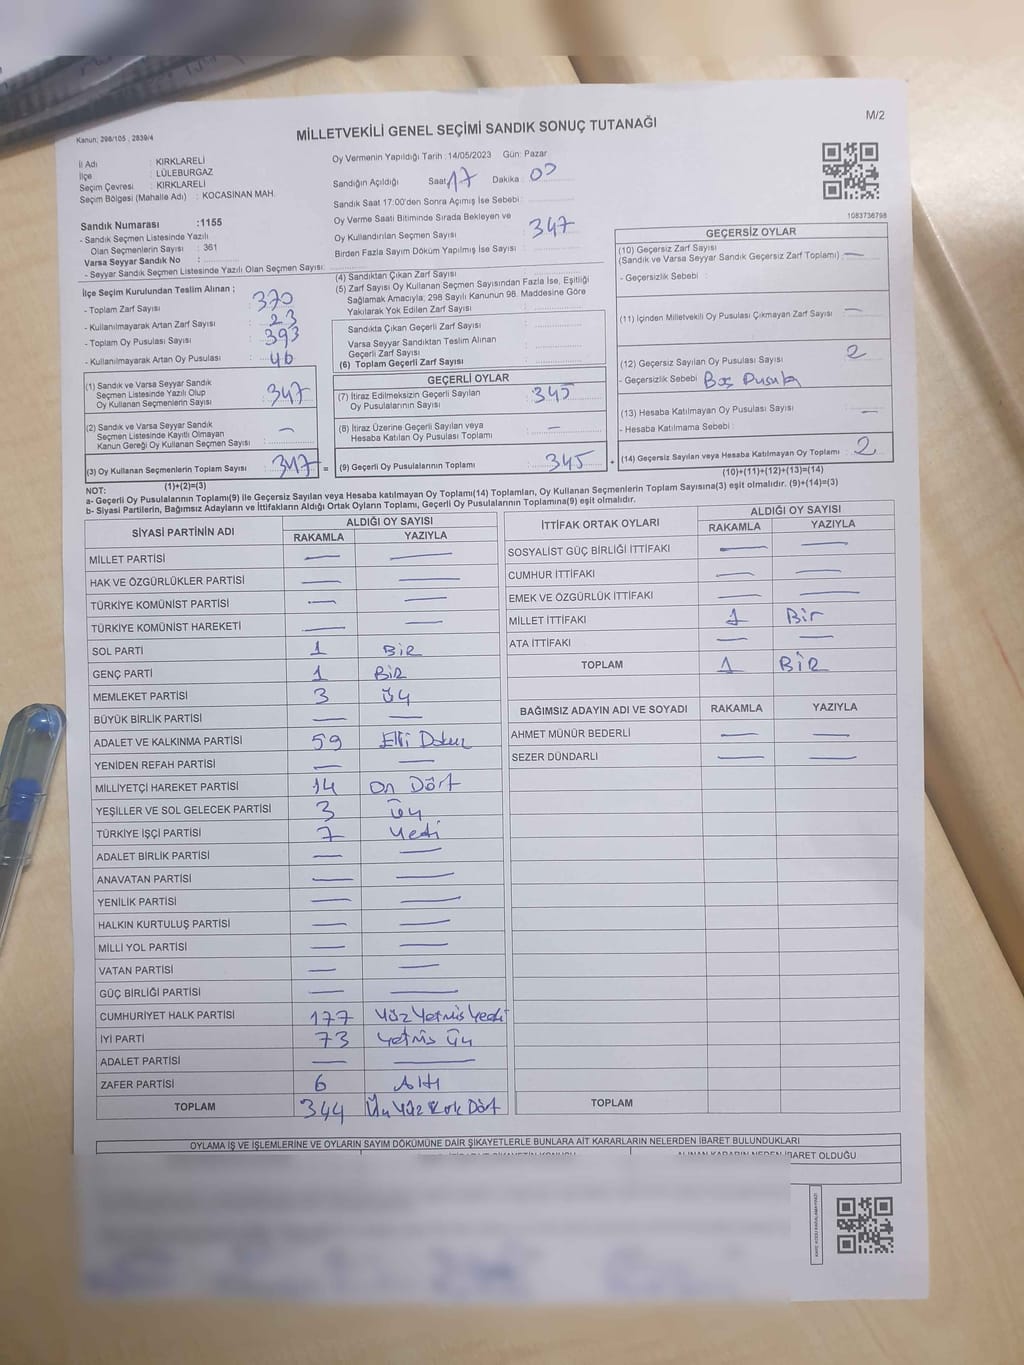 M/2
Kanun, 298/105 , 2839/4
MİLLETVEKİLİ GENEL SEÇİMİ SANDIK SONUÇ TUTANAĞI
İl Adı : KIRKLARELİ
İlçe : LÜLEBURGAZ
Seçim Çevresi : KIRKLARELİ
Seçim Bölgesi (Mahalle Adı) : KOCASİNAN MAH.
Sandık Numarası :1155
- Sandık Seçmen Listesinde Yazılı
Olan Seçmenlerin Sayısı : 361
Varsa Seyyar Sandık No :
- Seyyar Sandık Seçmen Listesinde Yazılı Olan Seçmen Sayısı:
Oy Vermenin Yapıldığı Tarih :14/05/2023 Gün: Pazar
Sandığın Açıldığı Saat 17 Dakika : 00
Sandık Saat 17:00'den Sonra Açımış İse Sebebi :
Oy Verme Saati Bitiminde Sırada Bekleyen ve
Oy Kullandırılan Seçmen Sayısı : 347
Birden Fazla Sayım Döküm Yapılmış İse Sayısı :
1083736798
İlçe Seçim Kurulundan Teslim Alınan ;
- Toplam Zarf Sayısı : 370
- Kullanılmayarak Artan Zarf Sayısı : 23
- Toplam Oy Pusulası Sayısı : 393
- Kullanılmayarak Artan Oy Pusulası : 46
(1) Sandık ve Varsa Seyyar Sandık
Seçmen Listesinde Yazılı Olup
Oy Kullanan Seçmenlerin Sayısı : 347
(2) Sandık ve Varsa Seyyar Sandık
Seçmen Listesinde Kayıtlı Olmayan
Kanun Gereği Oy Kullanan Seçmen Sayısı : —
(3) Oy Kullanan Seçmenlerin Toplam Sayısı : 347 =
(1)+(2)=(3)
(4) Sandıktan Çıkan Zarf Sayısı :
(5) Zarf Sayısı Oy Kullanan Seçmen Sayısından Fazla İse, Eşitliği
Sağlamak Amacıyla; 298 Sayılı Kanunun 98. Maddesine Göre
Yakılarak Yok Edilen Zarf Sayısı :
Sandıkta Çıkan Geçerli Zarf Sayısı :
Varsa Seyyar Sandıktan Teslim Alınan
Geçerli Zarf Sayısı :
(6) Toplam Geçerli Zarf Sayısı :
GEÇERLİ OYLAR
(7) İtiraz Edilmeksizin Geçerli Sayılan
Oy Pusulalarının Sayısı : 345
(8) İtiraz Üzerine Geçerli Sayılan veya
Hesaba Katılan Oy Pusulası Toplamı : —
(9) Geçerli Oy Pusulalarının Toplamı : 345 +
GEÇERSİZ OYLAR
(10) Geçersiz Zarf Sayısı
(Sandık ve Varsa Seyyar Sandık Geçersiz Zarf Toplamı) : —
- Geçersizlik Sebebi :
(11) İçinden Milletvekili Oy Pusulası Çıkmayan Zarf Sayısı : —
(12) Geçersiz Sayılan Oy Pusulası Sayısı : 2
- Geçersizlik Sebebi : Boş Pusula
(13) Hesaba Katılmayan Oy Pusulası Sayısı : —
- Hesaba Katılmama Sebebi :
(14) Geçersiz Sayılan veya Hesaba Katılmayan Oy Toplamı : 2
(10)+(11)+(12)+(13)=(14)
NOT:
a- Geçerli Oy Pusulalarının Toplamı(9) ile Geçersiz Sayılan veya Hesaba katılmayan Oy Toplamı(14) Toplamları, Oy Kullanan Seçmenlerin Toplam Sayısına(3) eşit olmalıdır. (9)+(14)=(3)
b- Siyasi Partilerin, Bağımsız Adayların ve İttifakların Aldığı Ortak Oyların Toplamı, Geçerli Oy Pusulalarının Toplamına(9) eşit olmalıdır.
SİYASİ PARTİNİN ADI ALDIĞI OY SAYISI
RAKAMLA YAZIYLA
MİLLET PARTİSİ — —
HAK VE ÖZGÜRLÜKLER PARTİSİ — —
TÜRKİYE KOMÜNİST PARTİSİ — —
TÜRKİYE KOMÜNİST HAREKETİ — —
SOL PARTİ 1 BİR
GENÇ PARTİ 1 BİR
MEMLEKET PARTİSİ 3 üç
BÜYÜK BİRLİK PARTİSİ — —
ADALET VE KALKINMA PARTİSİ 59 Elli Dokuz
YENİDEN REFAH PARTİSİ — —
MİLLİYETÇİ HAREKET PARTİSİ 14 On Dört
YEŞİLLER VE SOL GELECEK PARTİSİ 3 üç
TÜRKİYE İŞÇİ PARTİSİ 7 Yedi
ADALET BİRLİK PARTİSİ — —
ANAVATAN PARTİSİ — —
YENİLİK PARTİSİ — —
HALKIN KURTULUŞ PARTİSİ — —
MİLLİ YOL PARTİSİ — —
VATAN PARTİSİ — —
GÜÇ BİRLİĞİ PARTİSİ — —
CUMHURİYET HALK PARTİSİ 177 Yüz Yetmiş Yedi
İYİ PARTİ 73 Yetmiş Üç
ADALET PARTİSİ — —
ZAFER PARTİSİ 6 Altı
TOPLAM 344 Üç Yüz Kırk Dört
İTTİFAK ORTAK OYLARI ALDIĞI OY SAYISI
RAKAMLA YAZIYLA
SOSYALİST GÜÇ BİRLİĞİ İTTİFAKI — —
CUMHUR İTTİFAKI — —
EMEK VE ÖZGÜRLÜK İTTİFAKI — —
MİLLET İTTİFAKI 1 Bir
ATA İTTİFAKI — —
TOPLAM 1 BİR
BAĞIMSIZ ADAYIN ADI VE SOYADI RAKAMLA YAZIYLA
AHMET MÜNÜR BEDERLİ — —
SEZER DÜNDARLI — —
TOPLAM
OYLAMA İŞ VE İŞLEMLERİNE VE OYLARIN SAYIM DÖKÜMÜNE DAİR ŞİKAYETLERLE BUNLARA AİT KARARLARIN NELERDEN İBARET BULUNDUKLARI
ALINAN KARARIN NEDEN İBARET OLDUĞU